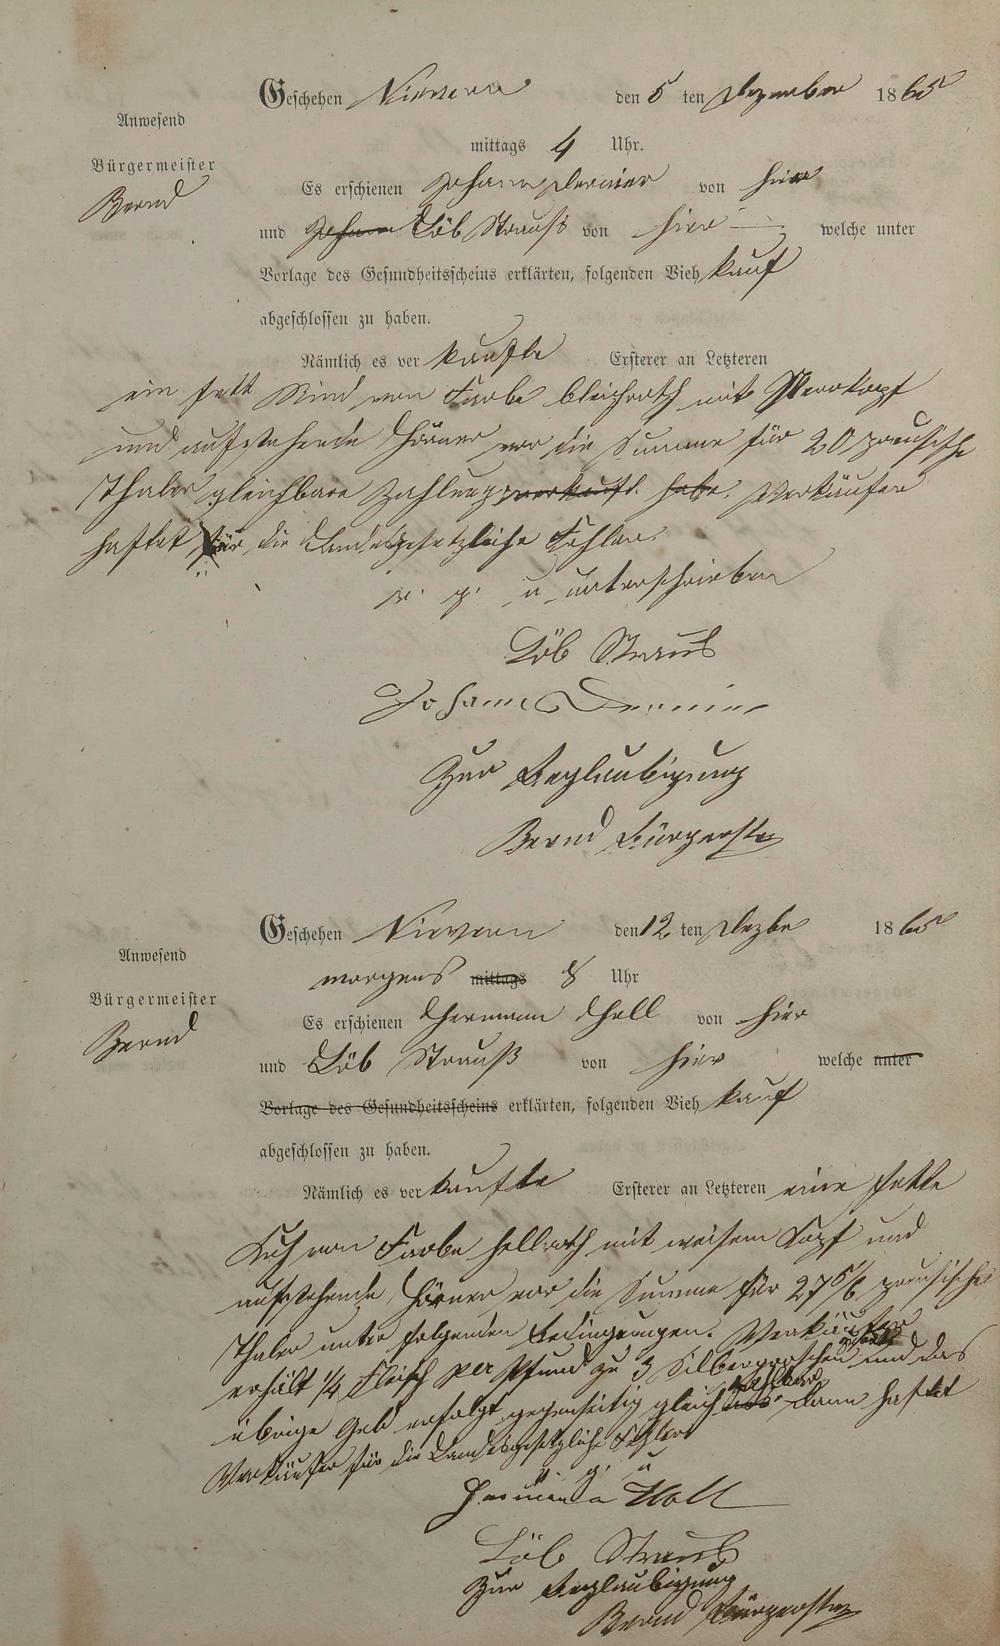 Geschehen Nievern den 5 ten Dezember 1865
Anwesend
mittags 4 Uhr.
Bürgermeister
Es erschienen Johann von hier
Bernd
und Johann Löb Strauß von hier welche unter
Vorlage des Gesundheitsscheins erklärten, folgenden Viehkauf
abgeschlossen zu haben.
Nämlich es verkaufte Ersterer an Letzteren
ein fett Rind von Farbe bleichroth mit
und aufstehende Hörner vor die Summe für 20 preusische
Thaler gleichbare Zahlung verkauft habe. Verkäufer
haftet für die Landesgesetzliche Fehler.
v. g. u unterschrieben
Löb Straus
Johann
Zur Beglaubigung
Bernd Bürgerstr
Geschehen Nievern den 12 ten Dezbe 1865
Anwesend
morgens mittags 8 Uhr
Bürgermeister
Es erschienen Hermann Holl von hier
Bernd
und Löb Strauß von hier welche unter
Vorlage des Gesundheitsscheins erklärten, folgenden Viehkauf
abgeschlossen zu haben.
Nämlich es verkaufte Ersterer an Letzteren eine fette
Kuh von Farbe hellroth mit weisem Kopf und
aufstehende Hörner vor die Summe für 27 5/6 preusische
Thaler unter folgenden Bedingungen. Verkäufer
erhält 1/4 Fleisch per Pfund zu 3 Silbergroschen und das
übrige Geld erfolgt gegenseitig gleich zahlbar dann haftet
Verkäufer für die Landesgesetzliche Fehler
v. g. u
Hermann Holl
Löb Straus
Zur Beglaubigung
Bernd Bürgerstr